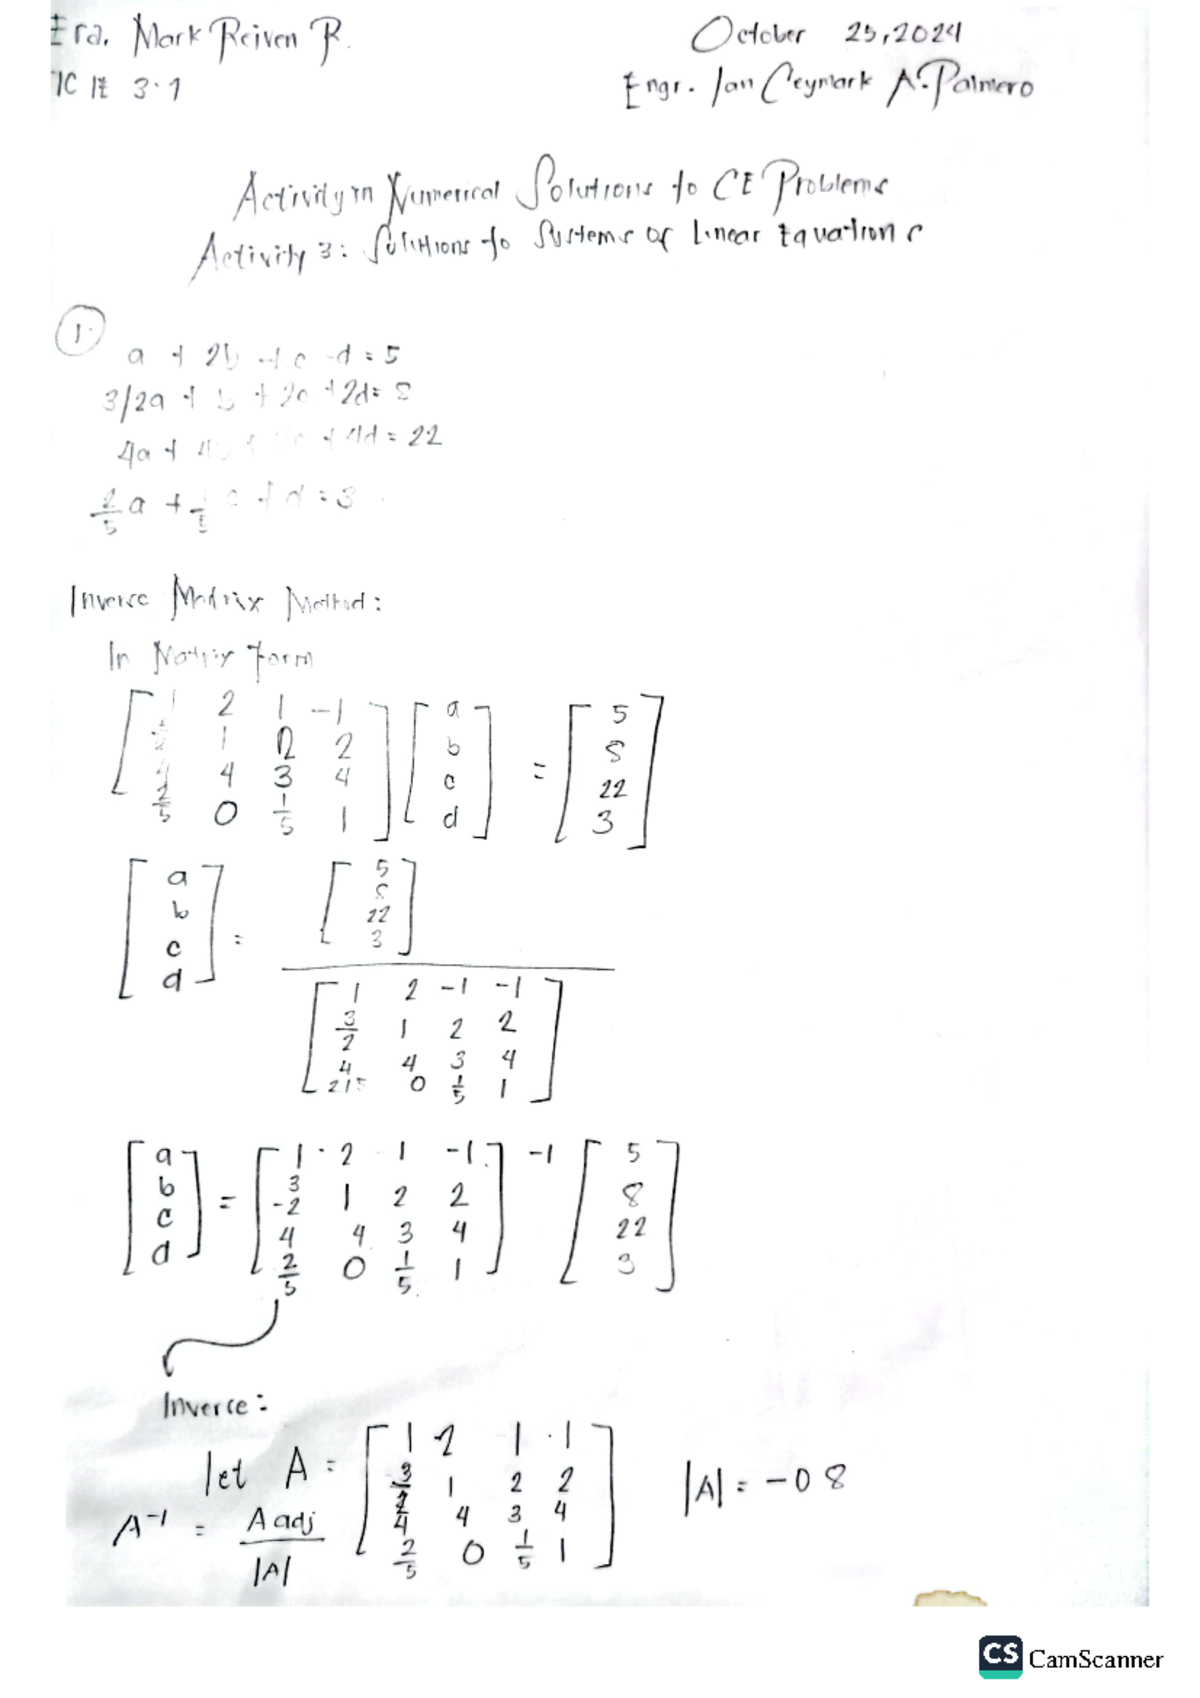 Era, Mark Reiven R.
October 25, 2024
3.1
Engr. Jan Ceymark A. Palmero
Activity in Numerical Solutions to CE Problems
Activity 3: Solutions to Systems of Linear Equations
1.
a + 2b + c - d = 5
3/2a + b + 2c + 2d = 8
4a + 4b + 3c + 4d = 22
2/5 a + 1/5 c + d = 3
Inverse Matrix Method:
In Matrix Form
[ 1 2 1 -1 ] [ a ] = [ 5 ]
1 2 2 b 8
4 4 3 4 c 22
2/5 0 1/5 1 d 3
[ a ] = [ 5 ]
b 8
c 22
d 3
[ 1 2 -1 -1 ]
3/2 1 2 2
4 4 3 4
2/5 0 1/5 1
[ a ] = [ 1 2 1 -1 ] -1 [ 5 ]
b 3/2 1 2 2 8
c 4 4 3 4 22
d 2/5 0 1/5 1 3
Inverse:
let A = [ 1 2 1 -1 ]
3/2 1 2 2
4 4 3 4
2/5 0 1/5 1
|A| = -0.8
A-1 = A adj / |A|
CS CamScanner